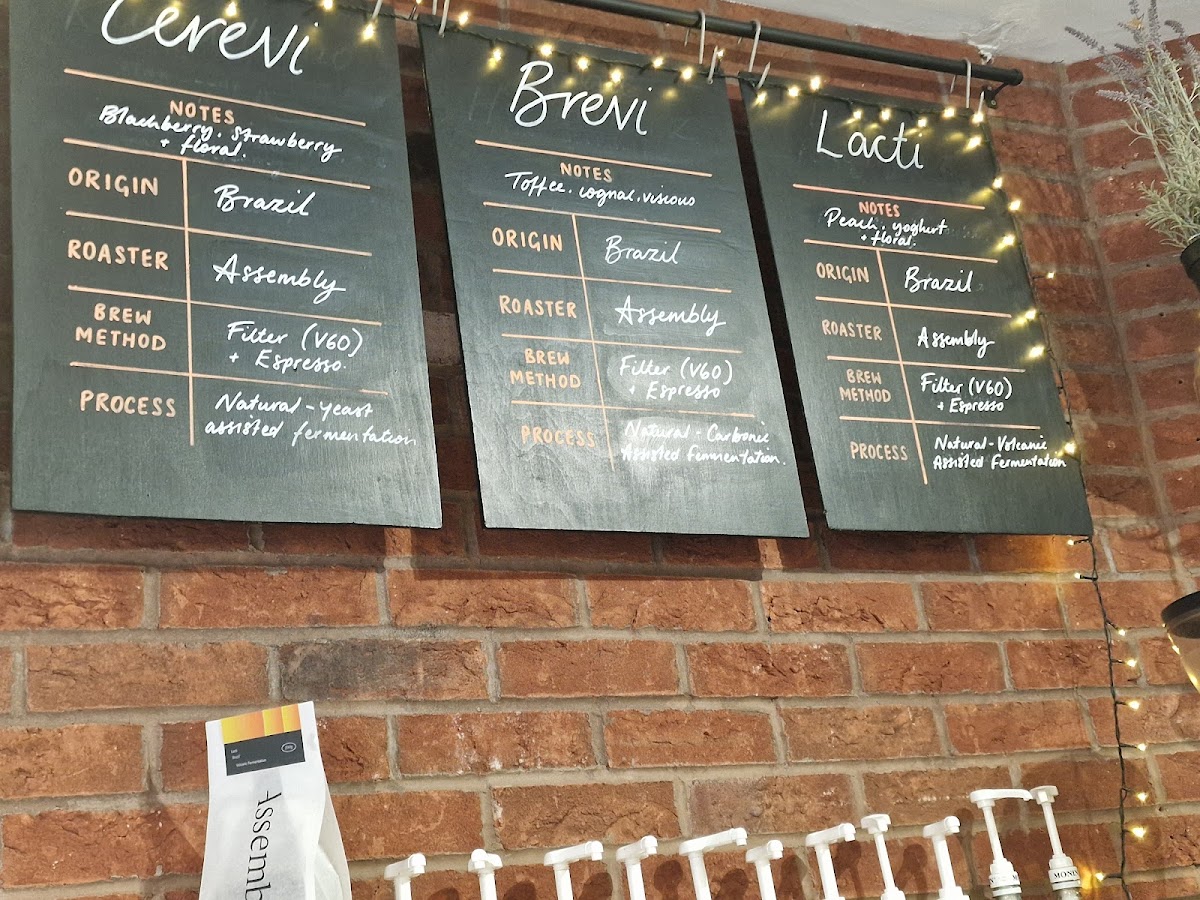 Cerevi
NOTES
Blackberry. Strawberry
+ floral.
ORIGIN
Brazil
ROASTER
Assembly
BREW
METHOD
Filter (V60)
+ Espresso.
PROCESS
Natural - yeast
assisted fermentation
Brevi
NOTES
Toffee. cognac. viscous
ORIGIN
Brazil
ROASTER
Assembly
BREW
METHOD
Filter (V60)
+ Espresso
PROCESS
Natural - Carbonic
Assisted Fermentation.
Lacti
NOTES
Peach. yoghurt
+ floral.
ORIGIN
Brazil
ROASTER
Assembly
BREW
METHOD
Filter (V60)
+ Espresso
PROCESS
Natural - Volcanic
Assisted Fermentation
Lacti
Brazil
Assemb
MONIN